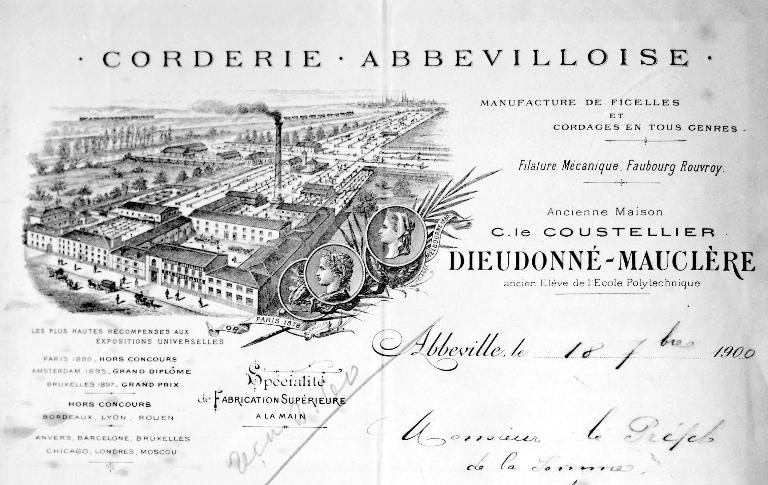 · CORDERIE · ABBEVILLOISE ·
MANUFACTURE DE FICELLES
ET
CORDAGES EN TOUS GENRES.
Filature Mécanique, Faubourg Rouvroy.
Ancienne Maison
C. le COUSTELLIER.
DIEUDONNÉ-MAUCLÈRE
ancien Elève de l'Ecole Polytechnique
OR
PARIS 1878
LES PLUS HAUTES RÉCOMPENSES AUX
EXPOSITIONS UNIVERSELLES
PARIS 1889. HORS CONCOURS
AMSTERDAM 1895. GRAND DIPLÔME
BRUXELLES 1897. GRAND PRIX
HORS CONCOURS
BORDEAUX, LYON, ROUEN
ANVERS, BARCELONE, BRUXELLES
CHICAGO, LONDRES, MOSCOU
Spécialité
de FABRICATION SUPÉRIEURE
A LA MAIN
Abbeville, le 18 7bre 1900
Monsieur le Préfet
de la Somme,